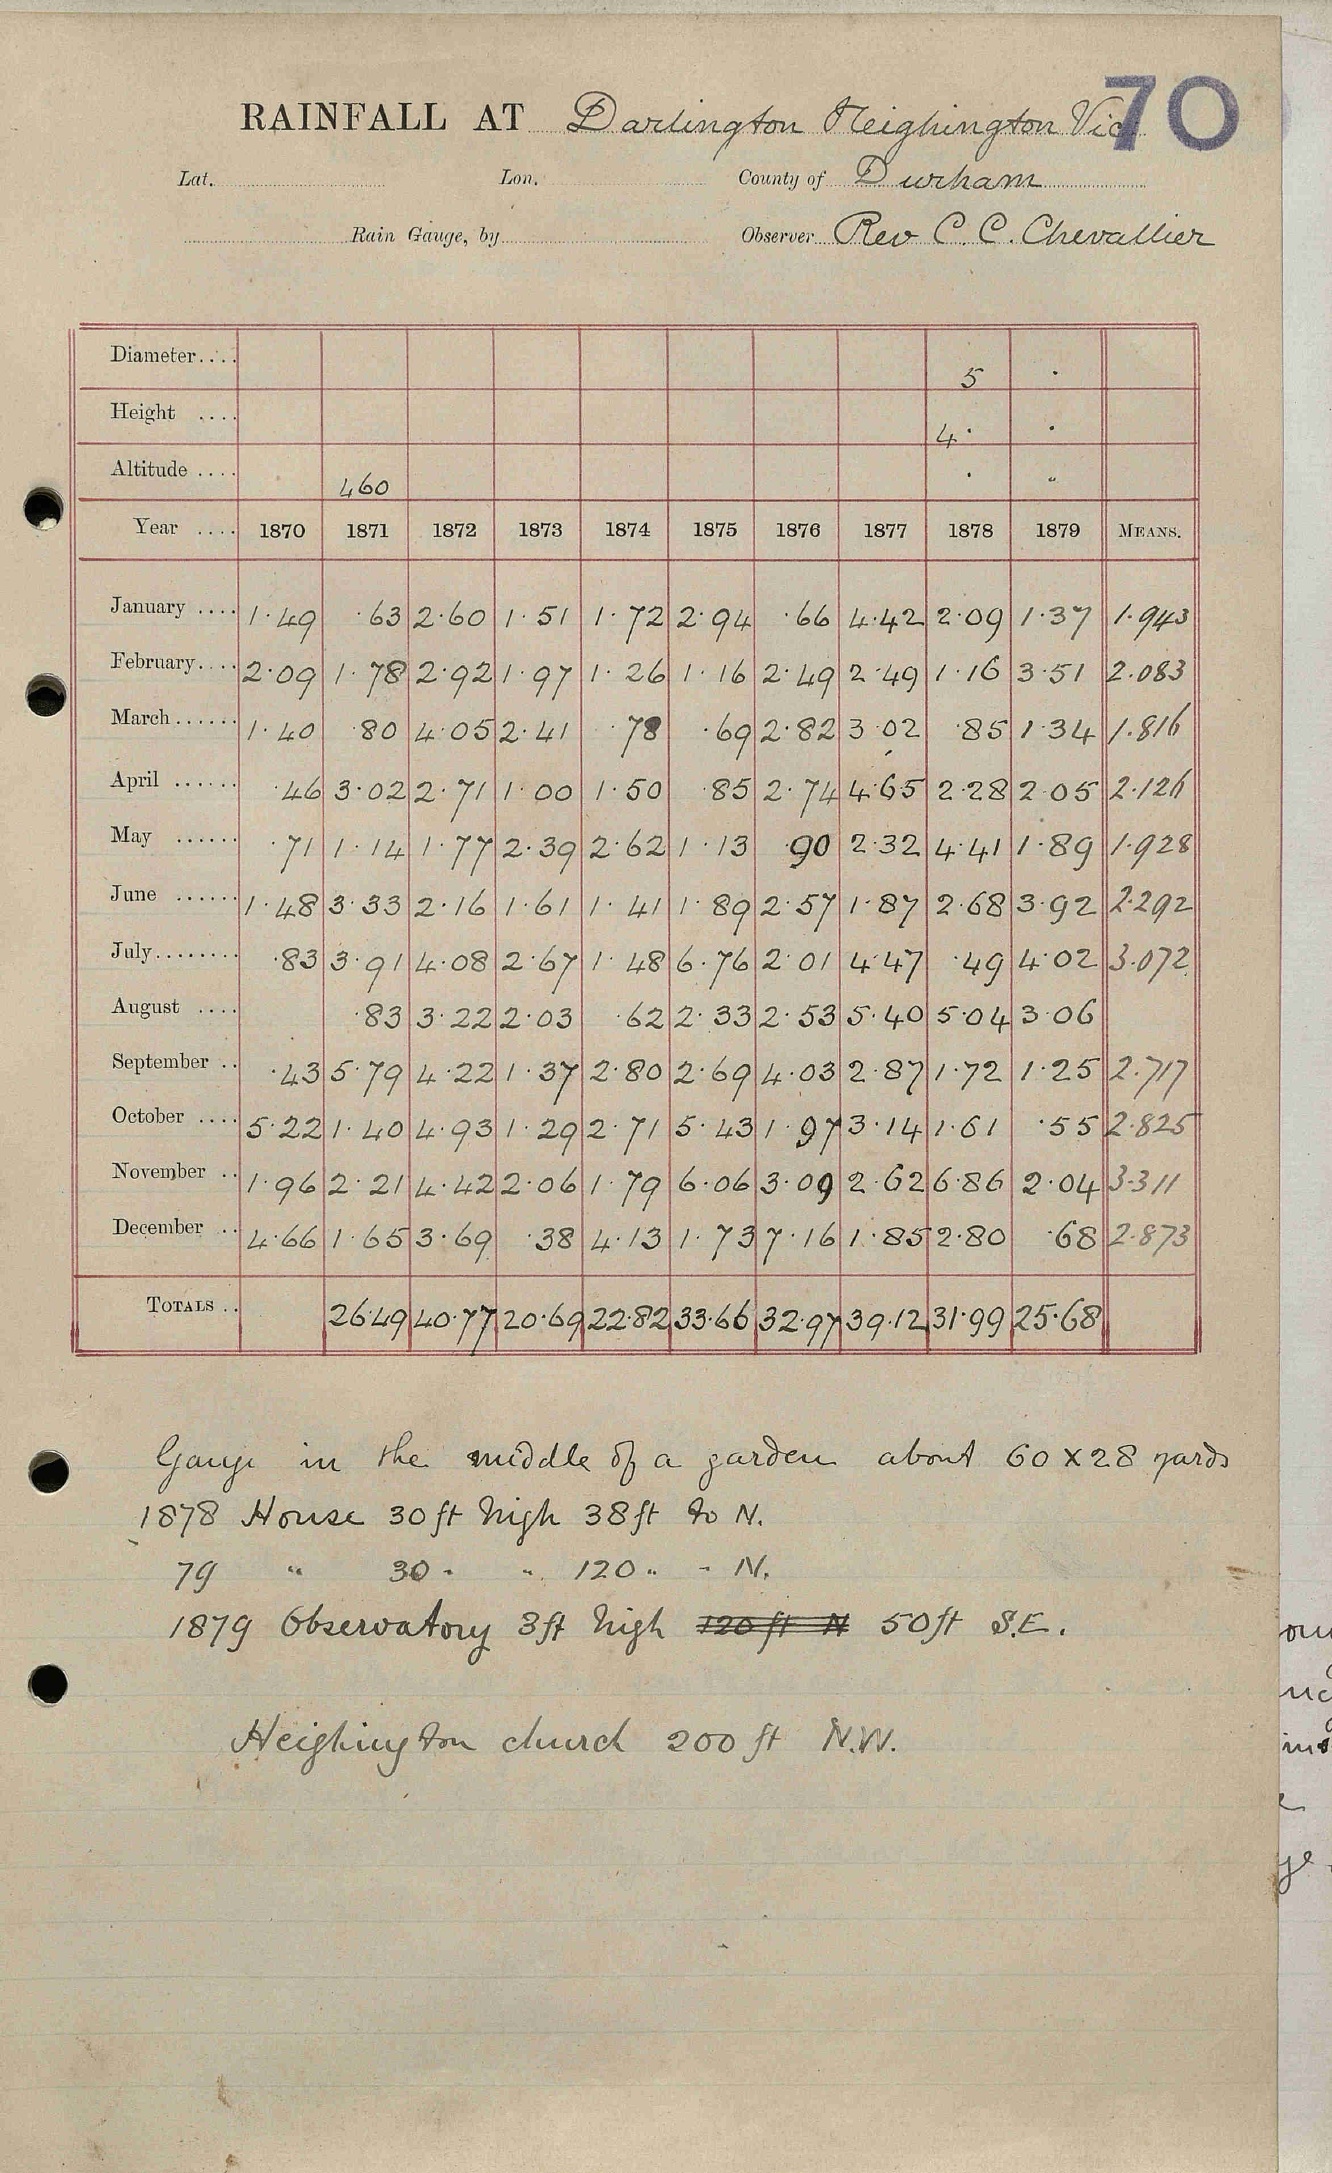 70
RAINFALL AT Darlington Heighington Vic
Lat. Lon. County of Durham
Rain Gauge, by Observer Rev C. C. Chevallier
Diameter.... 5 ·
Height .... 4· ·
Altitude .... 460 · "
Year .... 1870 1871 1872 1873 1874 1875 1876 1877 1878 1879 MEANS.
January .... 1·49 ·63 2·60 1·51 1·72 2·94 ·66 4·42 2·09 1·37 1·943
February.... 2·09 1·78 2·92 1·97 1·26 1·16 2·49 2·49 1·16 3·51 2·083
March...... 1·40 ·80 4·05 2·41 ·78 ·69 2·82 3·02 ·85 1·34 1·816
April ...... ·46 3·02 2·71 1·00 1·50 ·85 2·74 4·65 2·28 2·05 2·126
May ...... ·71 1·14 1·77 2·39 2·62 1·13 ·90 2·32 4·41 1·89 1·928
June ...... 1·48 3·33 2·16 1·61 1·41 1·89 2·57 1·87 2·68 3·92 2·292
July........ ·83 3·91 4·08 2·67 1·48 6·76 2·01 4·47 ·49 4·02 3·072
August .... ·83 3·22 2·03 ·62 2·33 2·53 5·40 5·04 3·06
September .. ·43 5·79 4·22 1·37 2·80 2·69 4·03 2·87 1·72 1·25 2·717
October .... 5·22 1·40 4·93 1·29 2·71 5·43 1·97 3·14 1·61 ·55 2·825
November .. 1·96 2·21 4·42 2·06 1·79 6·06 3·09 2·62 6·86 2·04 3·311
December .. 4·66 1·65 3·69 ·38 4·13 1·73 7·16 1·85 2·80 ·68 2·873
TOTALS .. 26·49 40·77 20·69 22·82 33·66 32·97 39·12 31·99 25·68
Gauge in the middle of a garden about 60 x 28 yards
1878 House 30 ft high 38 ft to N.
79 " 30 " " 120 " " N.
1879 Observatory 8 ft high 120 ft N 50 ft S.E.
Heighington church 200 ft N.W.